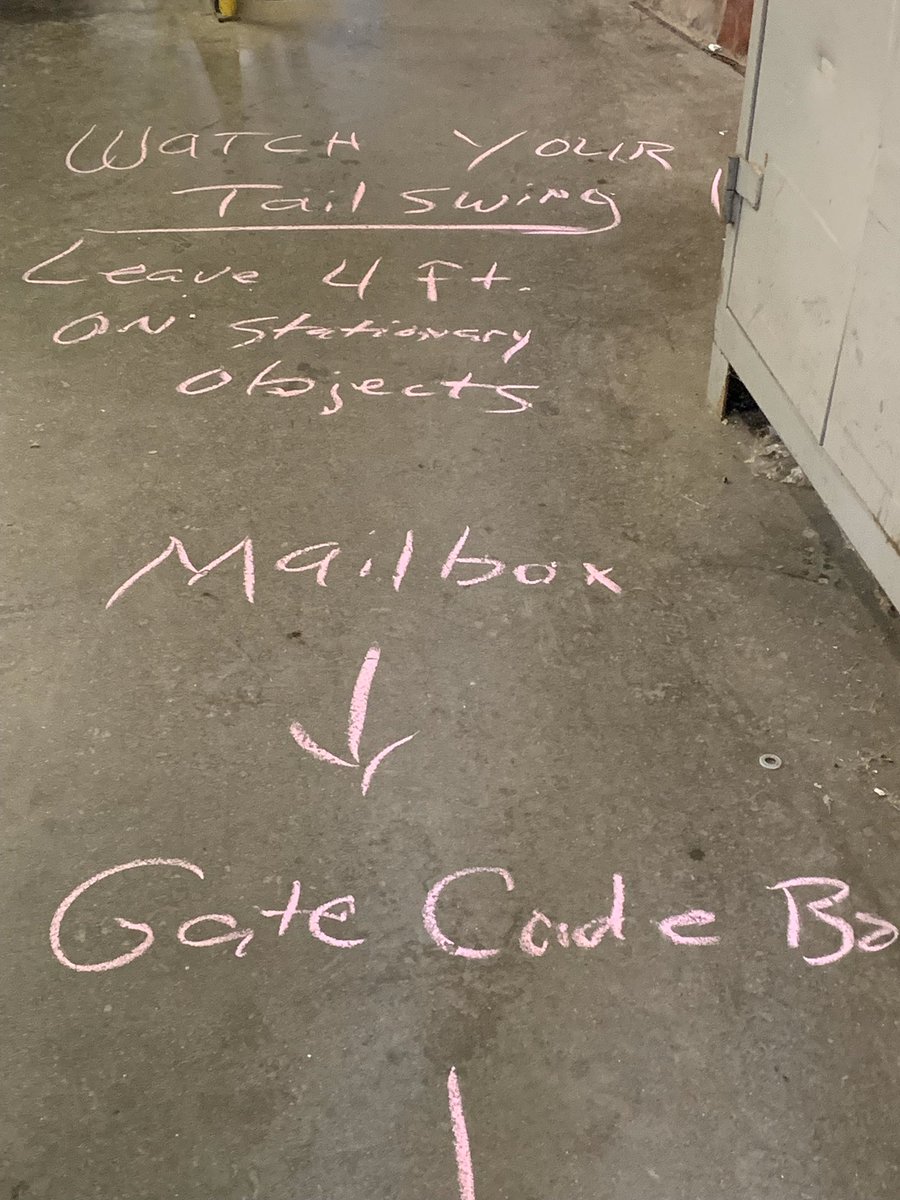 WATCH YOUR
Tail swing
Leave 4 Ft.
ON Stationary
Objects
Mailbox
Gate Code